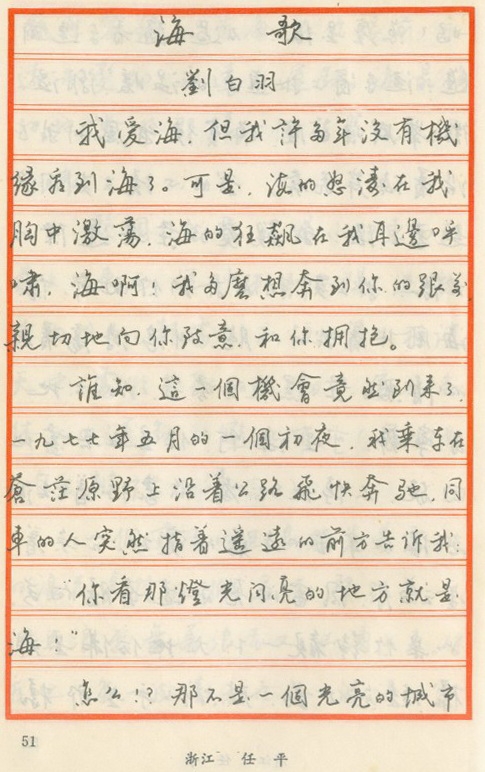 海 歌
劉白羽
我爱海,但我許多年没有機
缘看到海了。可是,海的怒濤在我
胸中激荡,海的狂飙在我耳邊呼
啸,海啊!我多麽想奔到你的跟前,
親切地向你致意,和你拥抱。
誰知,這一個機會竟然到来了,
一九七七年五月的一個初夜,我乘车在
蒼茫原野上沿着公路飛快奔驰,同
車的人突然指着遥遠的前方告訴我:
“你看那燈光闪亮的地方就是
海!”
怎么!?那不是一個光亮的城市
51
浙江 任平